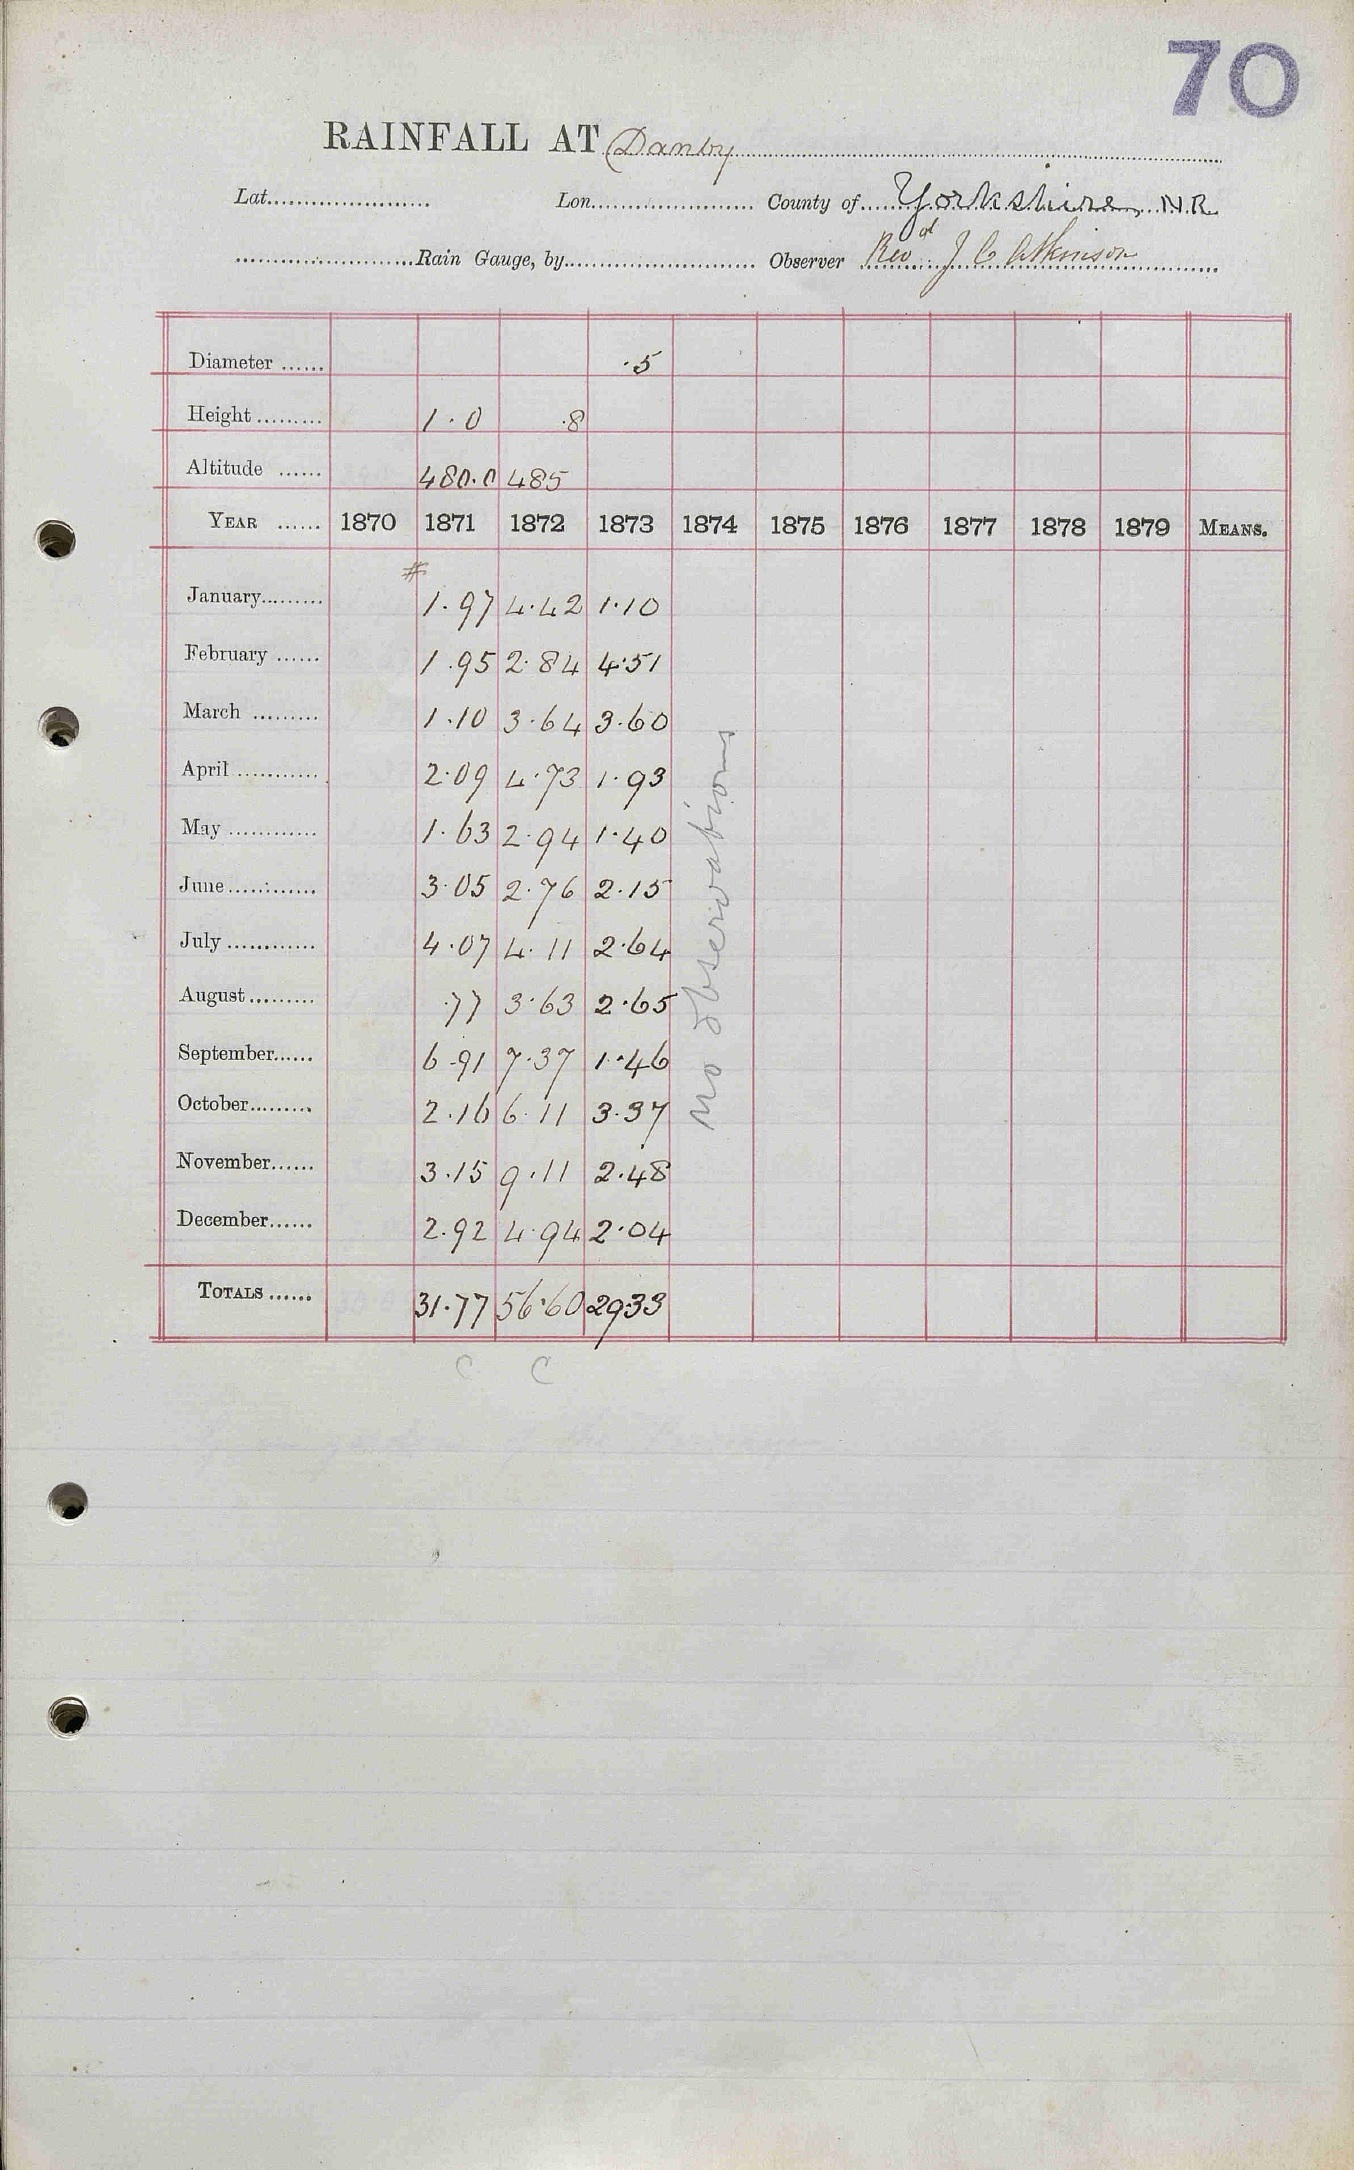 70
RAINFALL AT Danby
Lat. Lon. County of Yorkshire, N.R.
Rain Gauge, by Observer Revd J C Atkinson
Diameter ...... .5
Height ......... 1.0 .8
Altitude ...... 480.0 485
YEAR ...... 1870 1871 1872 1873 1874 1875 1876 1877 1878 1879 MEANS.
#
January......... 1.97 4.42 1.10
February ...... 1.95 2.84 4.51
March ......... 1.10 3.64 3.60
April ............ 2.09 4.73 1.93
May ............ 1.63 2.94 1.40
June ............ 3.05 2.76 2.15
July ............ 4.07 4.11 2.64
August ......... .77 3.63 2.65
September...... 6.91 7.37 1.46
October......... 2.16 6.11 3.37
November...... 3.15 9.11 2.48
December...... 2.92 4.94 2.04
No observations
TOTALS ...... 31.77 56.60 29.33
C C